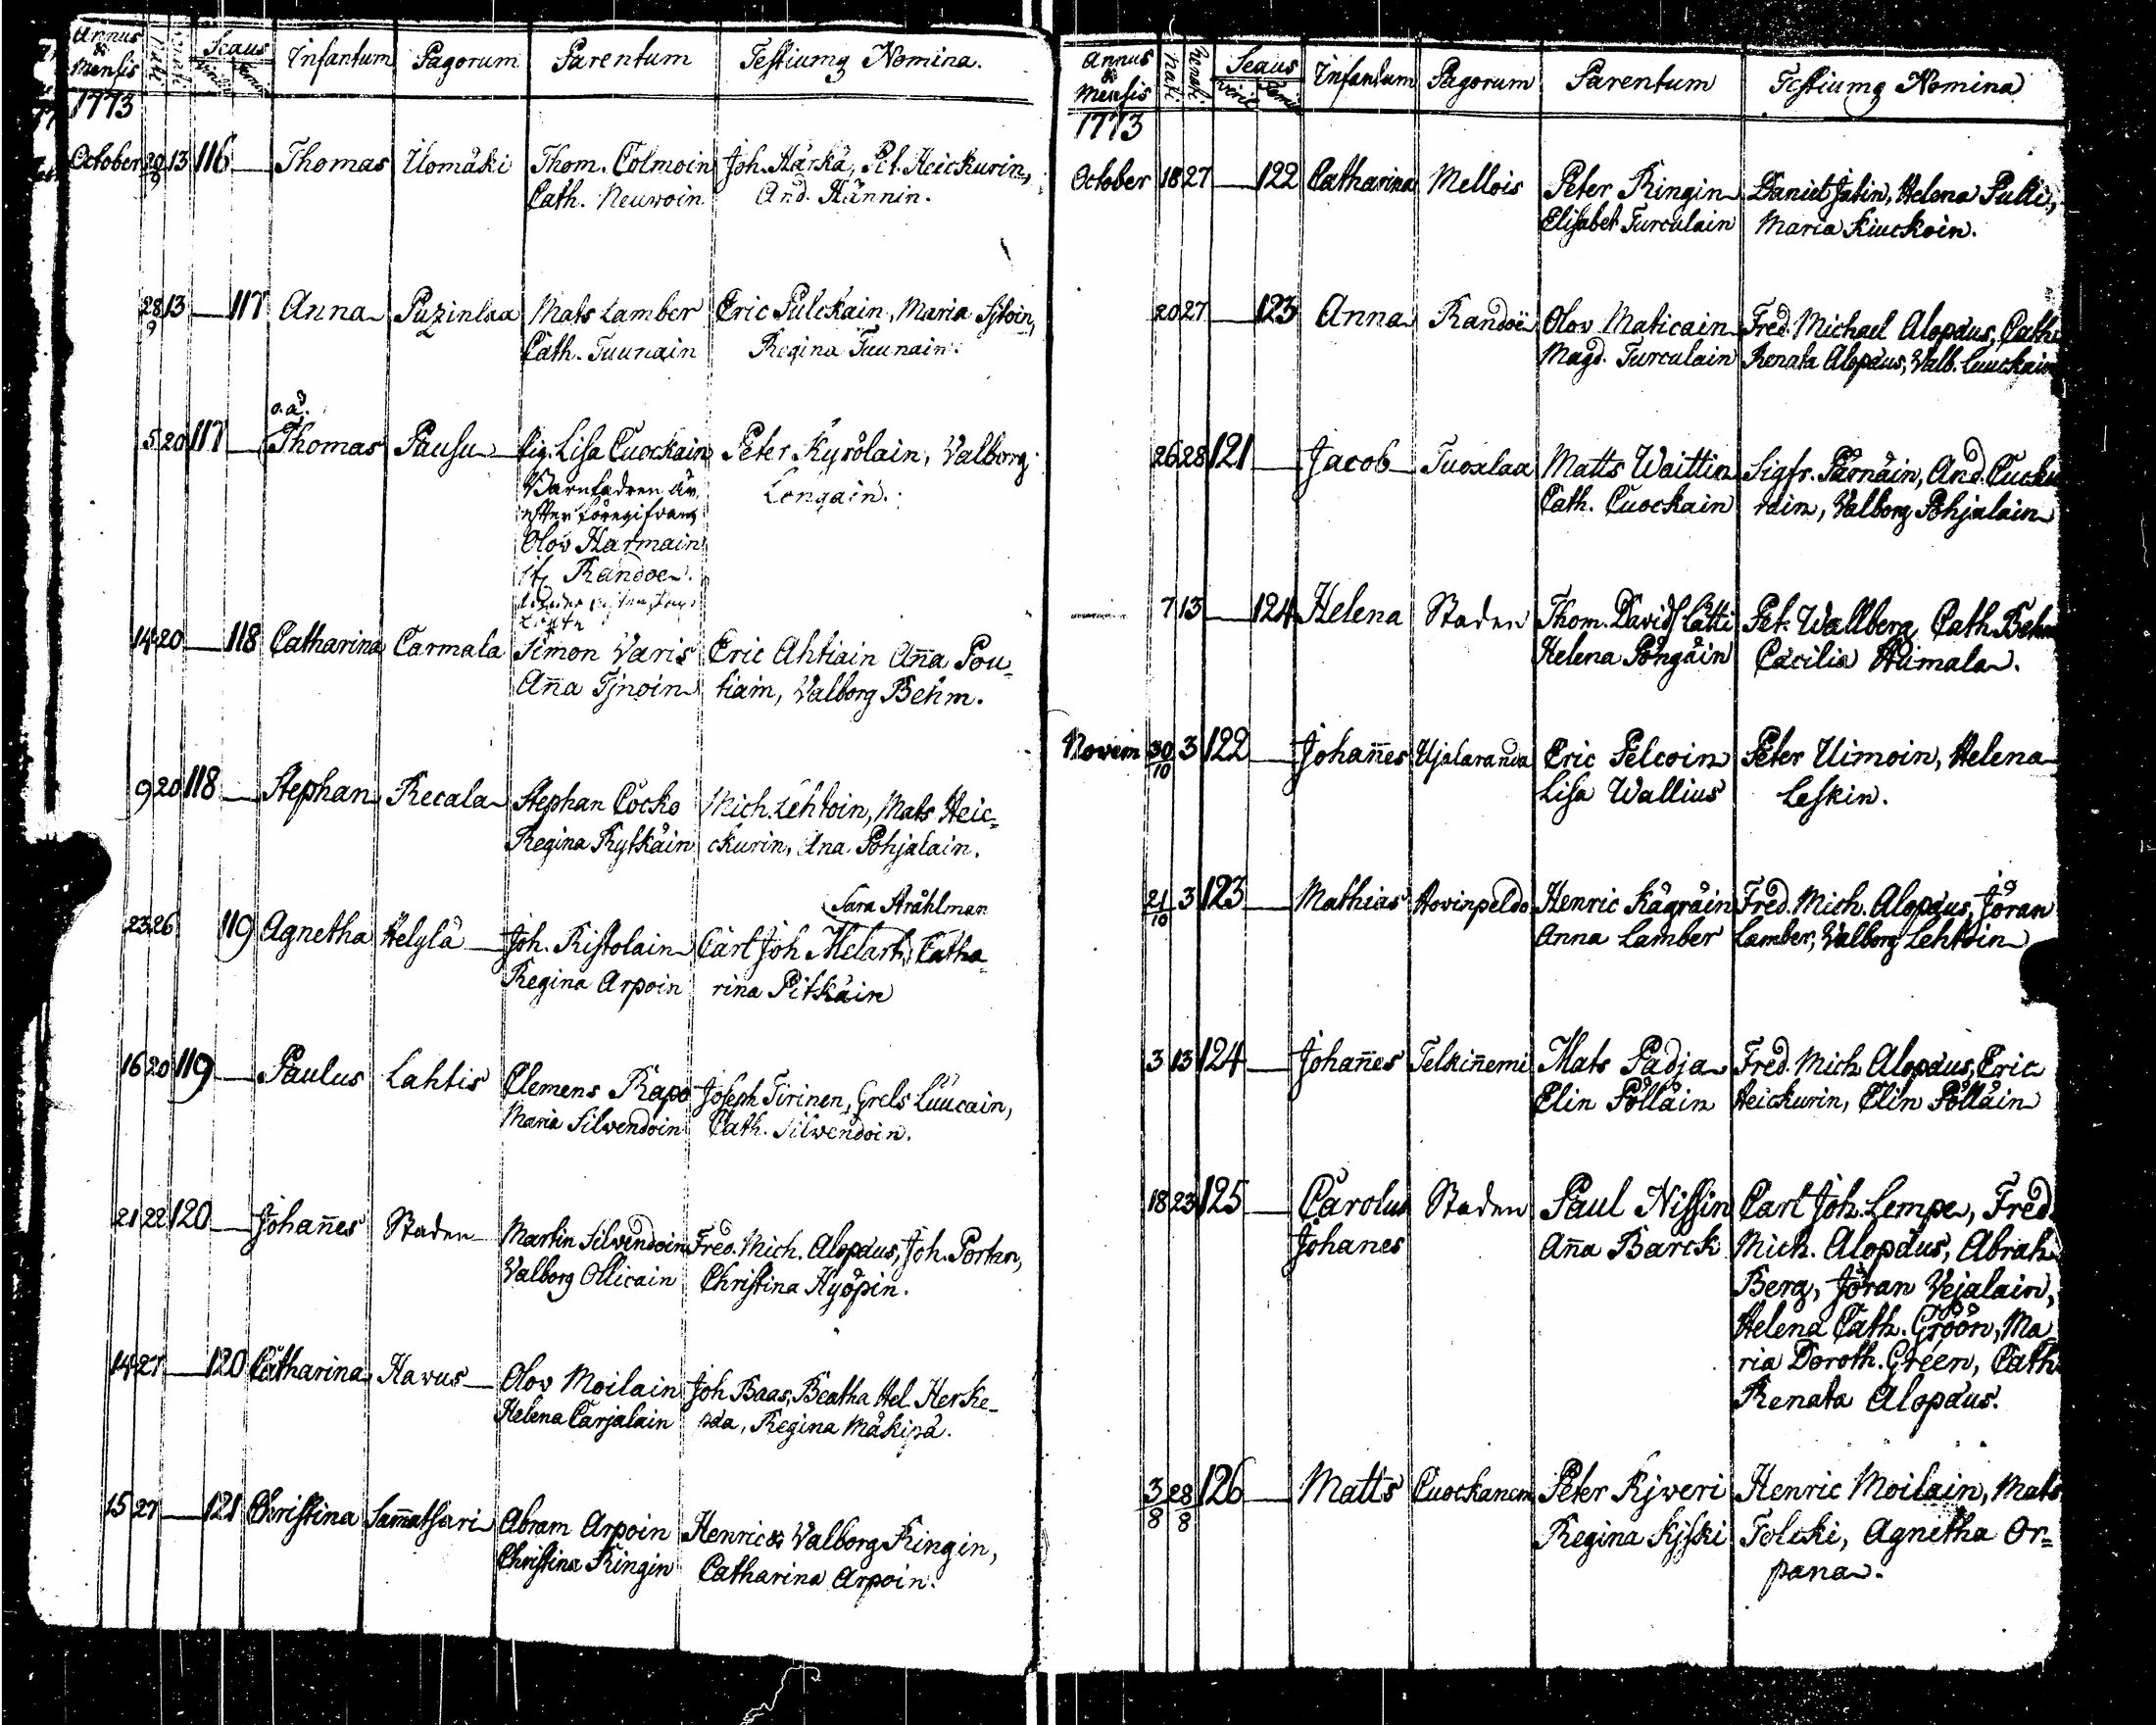 Annus & Mensis Nati Renati Sexus Infantum Pagorum Parentum Testiumq Nomina.
1773
October 29/9 13 116 — Thomas Uomäki Thom. Colmoin Joh. Härkä, Pet. Heickurin,
Cath. Neuwoin And. Hännin.
28/9 13 — 117 Anna Puzinlaa Mats Lamber Eric Pulckain, Maria
Cath. Tuunain Regina Tuunain.
o.ä.
5 20 117 — Thomas Pausu Pig. Lisa Cuockain Peter Kyrölain, Valborg
Barnfadren är Longain.
efter föregifvan
Olov Harmain
ifr. Randoe
14 20 — 118 Catharina Carmala Simon Varis Eric Ahtiain Aña Pou
Aña Tjnoin tiain, Valborg Behm.
9 20 118 — Stephan Recala Stephan Cocko Mich. Lehtoin, Mats Heic=
Regina Rytkäin ckurin, Ana Pohjalain.
Sara Stråhlman
23 26 119 Agnetha Helylä Joh. Ristolain Carl Joh Melart, Catha
Regina Arpoin rina Pitkäin
16 20 119 — Paulus Lahtis Clemens Rapo Joseph Tirinen, Grels Luucain,
Maria Silvendoin Cath. Silwendoin.
21 22 120 — Johañes Staden Martin Silvendoin Fred. Mich. Alopæus, Joh. Portan,
Valborg Ollicain Christina Hyöpin.
14 27 — 120 Catharina Havus Olov Moilain Joh Baas, Beatha Hel. Herke-
Helena Carjalain oda, Regina Mäkipä.
15 27 — 121 Christina Sam̃atsari Abram Arpoin Henric & Valborg Ringin,
Christina Ringin Catharina Arpoin.
Annus & Mensis Nati Renati Sexus Infantum Pagorum Parentum Testiumq Nomina
1773
October 18 27 — 122 Catharina Mellois Peter Ringin Daniel Jatin, Helena Pulli,
Elisabet Turculain Maria Kiuckoin.
20 27 — 123 Anna Randoë Olov Maticain Fred. Michael Alopæus, Cath.
Magd. Turculain Renata Alopæus, Valb. Luuckain
26 28 121 — Jacob Tuoxlax Matts Waittin Sigfr. Pärnäin, And. Cucku
Cath. Cuockain rain, Valborg Pohjalain
7 13 — 124 Helena Staden Thom. Davids Lätti Pet. Wallberg Cath. Behm
Helena Pöngäin Cæcilia Humala.
Novem 30/10 3 122 — Johañes Ujalaranda Eric Pelcoin Peter Uimoin, Helena
Lisa Wallius Leskin.
21/10 3 123 — Mathias Hovinpeldo Henric Kägräin Fred. Mich. Alopæus, Jöran
Anna Lamber Lamber, Valborg Lehtoin
3 13 124 — Johañes Telkiñemi Mats Padja Fred. Mich Alopæus, Eric
Elin Pölläin Heickurin, Elin Pölläin
18 23 125 — Carolus Staden Paul Nissin Carl Joh. Lempe, Fred.
Johanes Aña Barck Mich. Alopæus, Abrah
Berg, Jöran Vejalain,
Helena Cath. Gröön, Ma
ria Doroth. Green, Cath
Renata Alopæus.
3/8 28/8 126 — Matts Cuockanem Peter Rjveri Henric Moilain, Mats
Regina Kjski Tolcki, Agnetha Or=
pana.